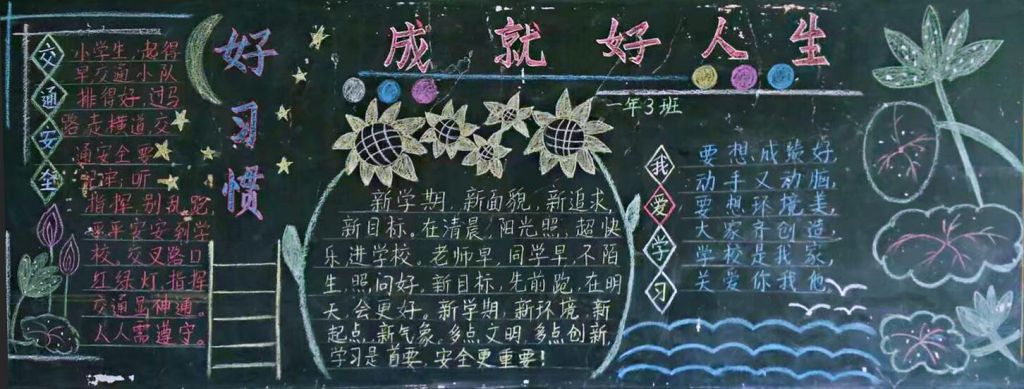 好习惯
成就好人生
一年3班
交通安全
小学生,起得
早交通小队
排得好,过马
路走横道,交
通安全要
牢牢,听
指挥,别乱跑,
平平安安到学
校。交叉路口
红绿灯,指挥
交通显神通。
人人需遵守。
新学期,新面貌,新追求,
新目标。在清晨,阳光照,超快
乐进学校。老师早,同学早,不陌
生,照问好。新目标,先前跑,在明
天,会更好。新学期,新环境,新
起点,新气象。多点文明,多点创新,
学习是首要,安全更重要!
我爱学习
要想成绩好,
动手又动脑,
要想环境美,
大家齐创造,
学校是我家,
关爱你我他,